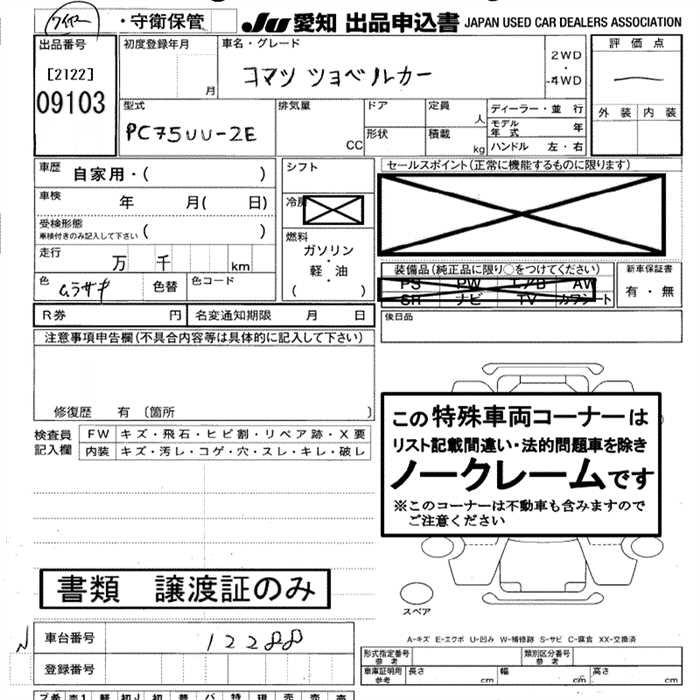 ワイヤー ・守衛保管 JU 愛知 出品申込書 JAPAN USED CAR DEALERS ASSOCIATION
出品番号 初度登録年月 月 車名・グレード 2WD ・ 4WD 評価点
[2122]
09103
コマツ ツョベルカー
外装 内装
型式 排気量 CC ドア 定員 人 ディーラー・並 行
PC75UU-2E 形状 積載 kg モデル年式 年
ハンドル 左・右
車歴 自家用・( )
シフト
セールスポイント(正常に機能するものに限ります)
車検 年 月( 日)
冷房
受検形態 ( )
車検付きのみ記入して下さい
燃料
ガソリン
・
軽・油
( )
走行 万 千 km
装備品(純正品に限り○をつけてください) 新車保証書
PS PW エアB AW 有・無
SR ナビ TV カワシート
色 ムラサキ 色替 色コード
R券 円 名変通知期限 月 日
後日品
注意事項申告欄(不具合内容等は具体的に記入して下さい)
修復歴 有 〔箇所 〕
検査員記入欄 FW キズ・飛石・ヒビ割・リペア跡・X要
内装 キズ・汚レ・コゲ・穴・スレ・キレ・破レ
この特殊車両コーナーは
リスト記載間違い・法的問題車を除き
ノークレームです
※このコーナーは不動車も含みますので
ご注意ください
スペア
書類 譲渡証のみ
A-キズ E-エクボ U-凹み W-補修跡 S-サビ C-腐食 XX-交換済
N 車台番号 12288
登録番号
形式指定番号 参考 類別区分番号 参考
車庫証明用 参考 長さ cm 幅 cm 高さ cm